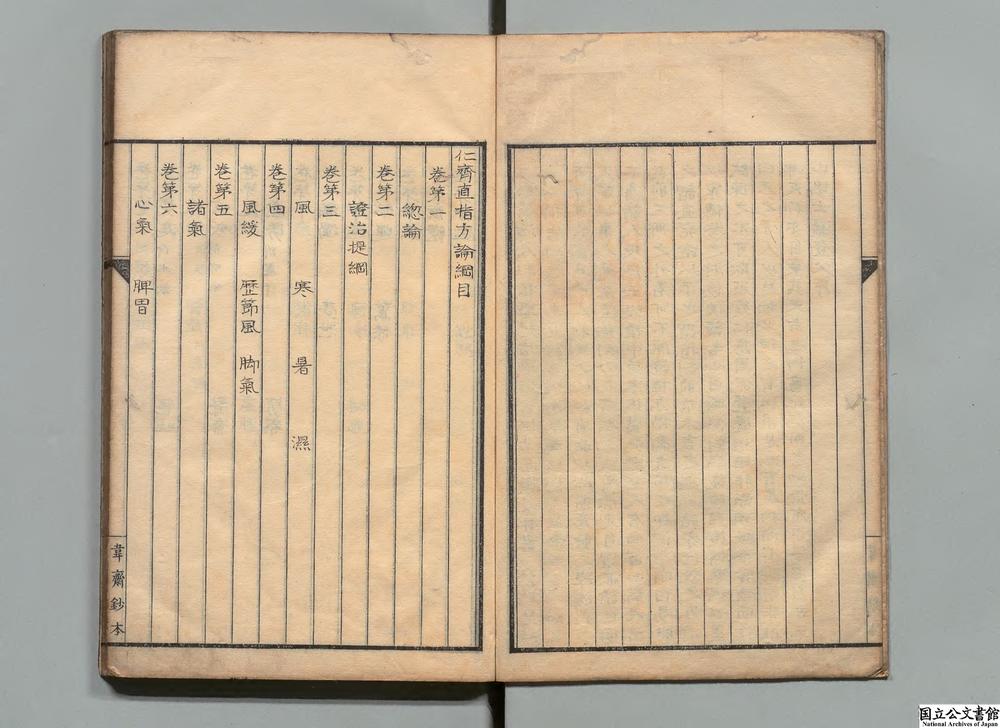 仁齋直指方論綱目
卷第一
緫論
卷第二
證治提綱
卷第三
風 寒 暑 濕
卷第四
風緩 歷節風 脚氣
卷第五
諸氣
卷第六
心氣 脾胃
韋齋鈔本
国立公文書館
National Archives of Japan